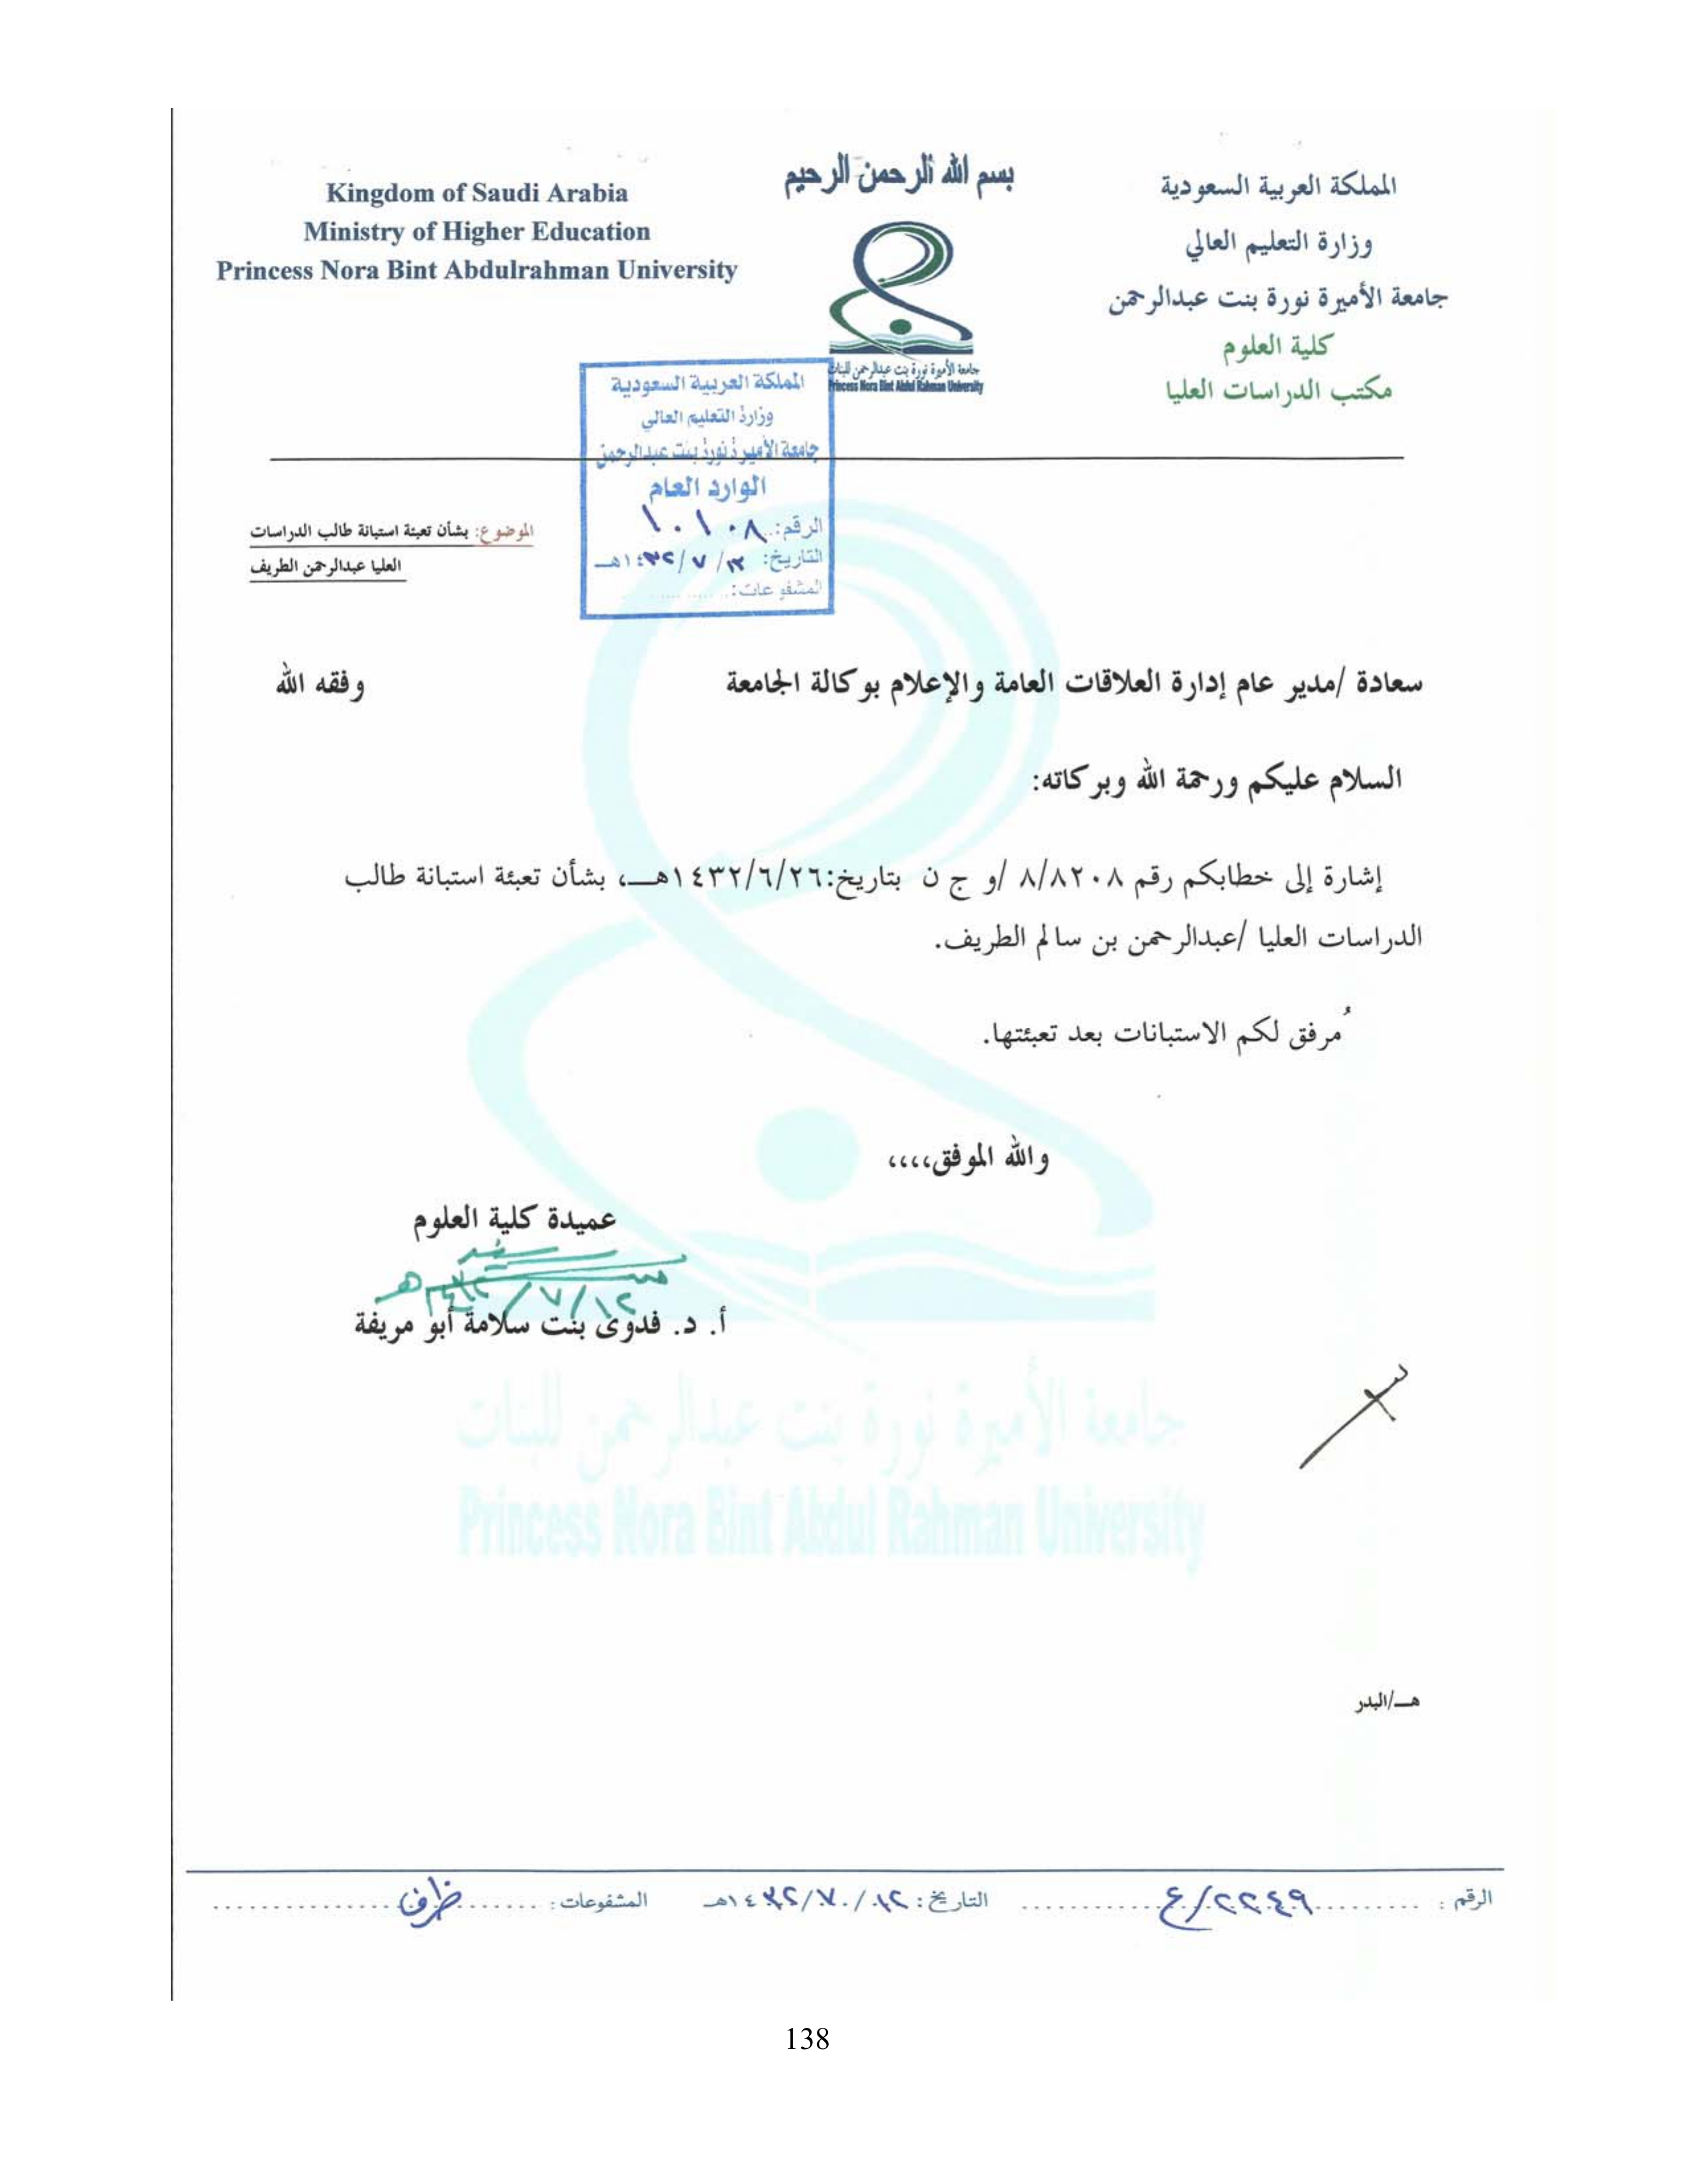 بسم الله الرحمن الرحيم
المملكة العربية السعودية
وزارة التعليم العالي
جامعة الأميرة نورة بنت عبدالرحمن
كلية العلوم
مكتب الدراسات العليا
Kingdom of Saudi Arabia
Ministry of Higher Education
Princess Nora Bint Abdulrahman University
جامعة الأميرة نورة بنت عبدالرحمن للبنات
Princess Nora Bint Abdul Rahman University
المملكة العربية السعودية
وزارة التعليم العالي
جامعة الأميرة نورة بنت عبدالرحمن
الوارد العام
الرقم: ١٠١٠٨
التاريخ: ١٣/ ٧ /١٤٣٢هـ
المشفوعات:
الموضوع: بشأن تعبئة استبانة طالب الدراسات
العليا عبدالرحمن الطريف
سعادة /مدير عام إدارة العلاقات العامة والإعلام بوكالة الجامعة وفقه الله
السلام عليكم ورحمة الله وبركاته:
إشارة إلى خطابكم رقم ٨/٨٢٠٨ /و ج ن بتاريخ:١٤٣٢/٦/٢٦هـ، بشأن تعبئة استبانة طالب
الدراسات العليا /عبدالرحمن بن سالم الطريف.
مُرفق لكم الاستبانات بعد تعبئتها.
والله الموفق،،،،
عميدة كلية العلوم
١٢/ ٧/ ١٤٣٢هـ
أ. د. فدوى بنت سلامة أبو مريفة
جامعة الأميرة نورة بنت عبدالرحمن للبنات
Princess Nora Bint Abdul Rahman University
هـ/البدر
الرقم : ٢٢٤٩/ع التاريخ : ١٢/ ٧/ ١٤٣٢هـ المشفوعات : ظرف
138